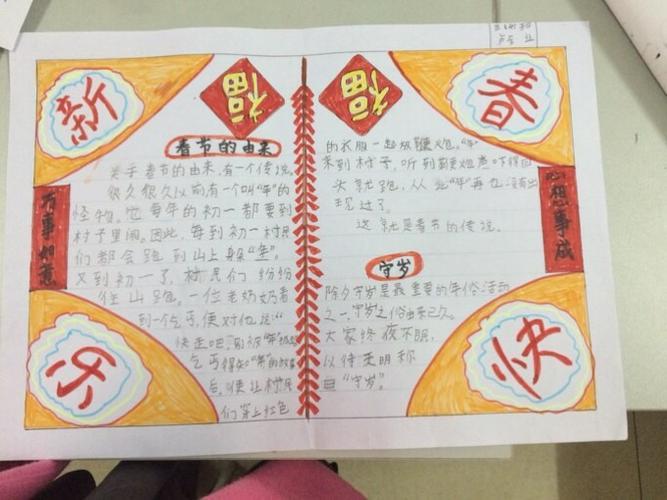 新
福
福
春
春节的由来
关于春节的由来,有一个传说。
很久很久以前有一个叫“年”的
怪物。它每年的初一都要到
村子里闹。因此,每到初一村民
们都会跑到山上躲“年”。
又到初一了,村民们纷纷
往山跑。一位老奶奶看
到一个乞丐,便对他说:“
快走吧,别被“年”
乞丐得知“年”的故事
后,便让村民
们穿上红色
的衣服一起放鞭炮。“年”
来到村子,听到鞭炮声吓得回
头就跑,从此“年”再也没有出
现过了。
这就是春节的传说。
守岁
除夕守岁是最重要的年俗活动
之一,守岁之俗由来已久。
大家终夜不眠,
以待天明称
曰“守岁”。
万事如意
心想事成
乐
快